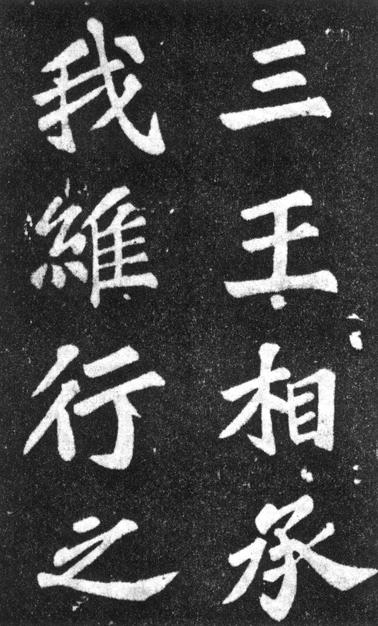 三王相承
我維行之